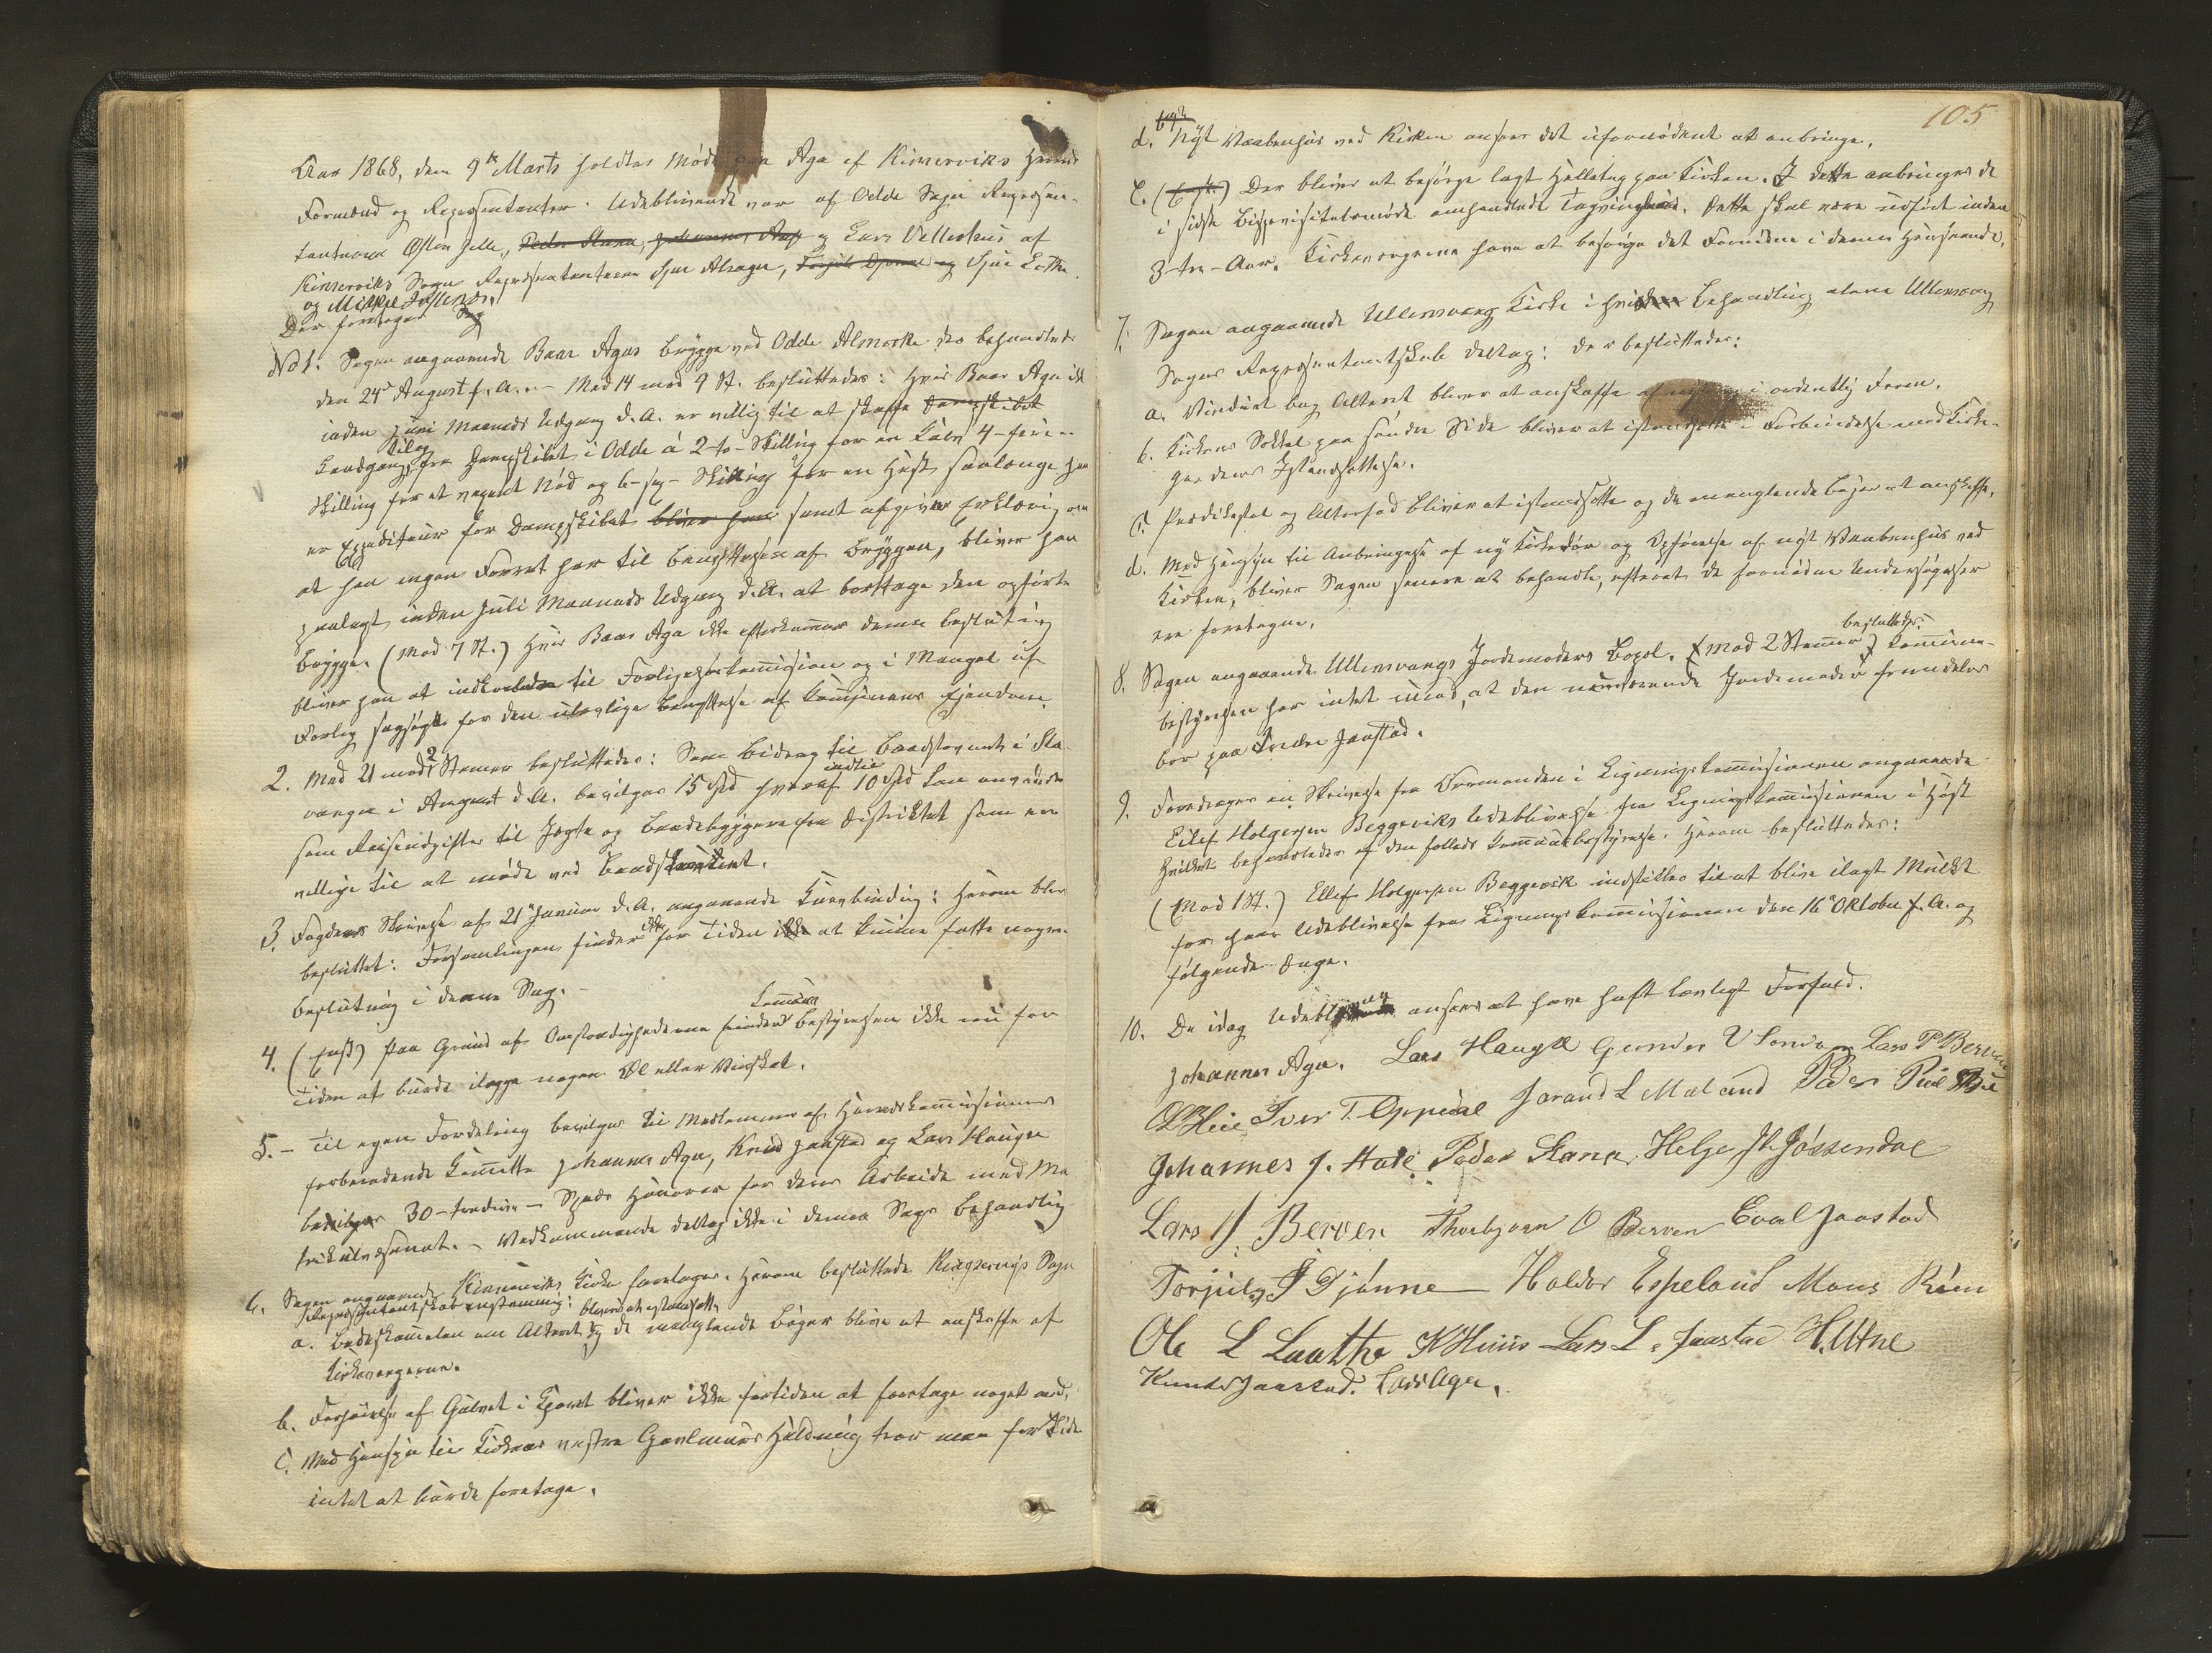 Aar 1868, den 9de Marts holdtes Møde paa Aga af Kinserviks Herreds
Formænd og Repræsentanter. Udeblivende var af Odde Sogn Repræsen-
tanterne Østen Jelle, Peder Skare, Johannes og Lars Vetlehuus, af
Kinserviks Sogn Repræsentanterne Sjur Alsager, Torjuls Djønne og Sjur Lothe
og Mikkel
Der foretoges Sag
No 1. Sagen angaaende Baar Agas Brygge ved Odde Almerke der behandledes
den 24de August f. A. – Med 14 mod 9 St. besluttedes: Hvis Baar Aga ikke
inden Juni Maaneds Udgang d. A. er villig til at skaffe Dampskibet
Landgang fra Dampskibet i Odde á 2-to-Skilling for en Karv 4-fire-
Skilling for et voxent Nød og 6-sex-Skilling for en Hest saalænge han
er Expeditør for Dampskibet bliver han samt afgiver Erklæring om
at han ingen Forret har til Benyttelsen af Bryggen, bliver han
paalagt inden Juli Maaneds Udgang d. A. at borttage den opførte
Brygge. (Mod 7 St.) Hvis Baar Aga ikke efterkommer denne Beslutning
bliver han at indkalde til Forligelseskommission og i Mangel af
Forlig sagsøgt for den ulovlige Benyttelse af Kommunens Ejendom.
2. Med 21 mod 2 Stemmer besluttedes: Som Bidrag til Baadstevnet i Sta
vanger i August d. A. bevilges 15 Spd hvoraf indtil 10 Spd kan anvendes
som Reiseudgifter til Jægte og Baadebyggere fra Distriktet som ere
villige til at møde ved Baadstevnet.
3. Fogdens Skrivelse af 21de Januar d. A. angaaende Kurvbinding: Herom blev
besluttet: Forsamlingen finder ikke for Tiden at kunne fatte nogen
Beslutning i denne Sag. –
4. (Enst) Paa Grund af Omstændighederne finder Kommune Bestyrelsen ikke nu for
Tiden at burde ilægge nogen Øl eller Vinskat.
5. – Til egen Fordeling bevilges til Medlemmer af Herredskommissionens
forberedende Komitte Johannes Aga, Knud Jaastad og Lars Haugse
bevilges 30-tredive-Spds Honorar for deres Arbeide med Ma
trikulvæsenet. – Vedkommende deltog ikke i denne Sags Behandling
6. Sagen angaaende Kinserviks Kirke foretages. Herom besluttede Kinserviks Sogns
Repræsentantskab enstemmig:
a. Bedeskamlen om Alteret bliver at istandsætte og de manglende Bøger blive at anskaffe af
Kirkeværgerne.
b. Forhøielse af Gulvet i Choret bliver ikke fortiden at foretage noget ved.
c. Med Hensyn til Kirkens vestre Gavlmuurs Heldning tror man for Tiden
intet at burde foretage.
105
d. Nyt Vaabenhus ved Kirken anses det ufornødent at anbringe.
e. (Enst.) Der bliver at besørge lagt Helletag paa Kirken. I dette anbringes de
i sidste Bispevisitatsmøde omhandlede Tagvinduer. Dette skal være udført inden
3-tre-Aar. Kirkeværgerne have at besørge det Fornødne i denne Henseende.
7. Sagen angaaende Ullensvang Kirke i hvis Behandling alene Ullensvang
Sogns Repræsentantskab deltog: der besluttedes:
a. Vinduet bag Alteret bliver at anskaffe af nyt i ordentlig Form.
b. Kirkens Sokkel paa søndre Side bliver at istandsætte i Forbindelse med Kirke-
gardens Istandsættelse.
c. Prædikestol og Alterfod bliver at istandsætte og de manglende Bøger at anskaffe.
d. Med Hensyn til Anbringelse af ny Kirkedør og Opførelse af nyt Vaabenhus ved
Kirken, bliver Sagen senere at behandle, efterat de fornødne Undersøgelser
ere foretagne.
8. Sagen angaaende Ullensvangs Jordemoders Bopæl. (mod 2 Stemmer) besluttedes: Kommune-
bestyrelsen har intet imod, at den nuværende Jordemoder fremdeles
bor paa Indre Jaastad.
9. Foredroges en Skrivelse fra Formanden i Ligningskommissionen angaaende
Eilif Holgersen Beggeviks Udeblivelse fra Ligningskommissionen i Høst
hvilket behandledes af den fælleds Kommunebestyrelse. Herom besluttedes:
(Mod 1 St.) Ellif Holgersen Beggevik indstilles til at blive ilagt Mulkt
for hans Udeblivelse fra Ligningskommissionen den 16de Oktober f. A. og
følgende Dage.
10. De idag Udeblevne ansees at have havt lovligt Forfald.
Johannes Aga. Lars Haugse Gunder Lars P Berven
Iver T. Oppedal Jørand L Maland Peder
Johannes J. Peder Skare Helge Jøssendal
Lars J. Berven Thorbjørn O Berven Eval Jaastad
Torjuls Djønne Haldor Espeland Mons
Ole L Laathe K Huus Lars L. Jaastad H. Utne
Knud Jaastad. Lars Aga.